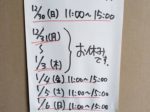 12/30(日) 11:00〜15:00
12/31(月)
〜
1/3(木)
お休みです。
1/4(金) 11:00〜15:00
1/5(土) 11:00〜15:00
1/6(日) 11:00〜15:00